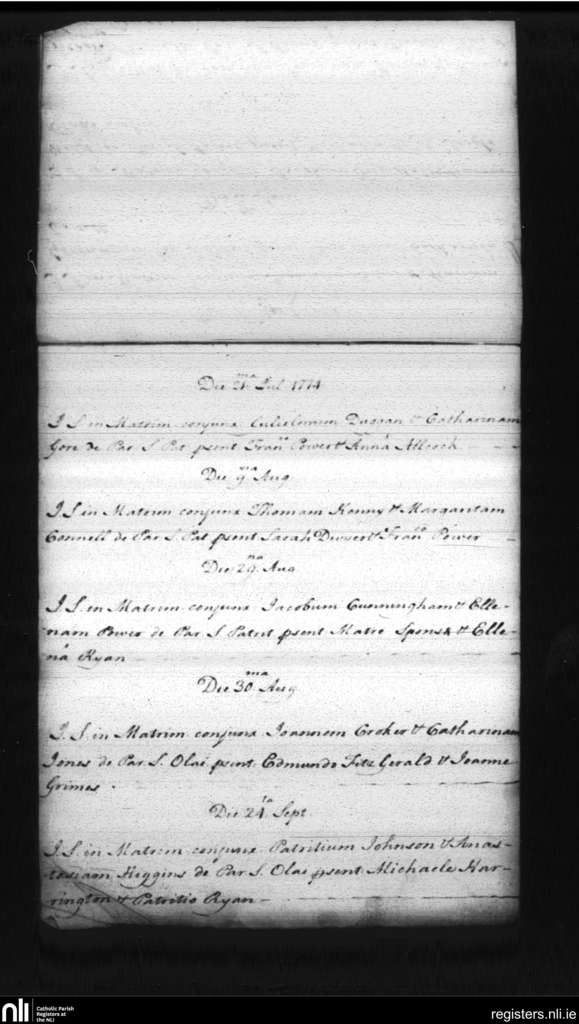 Die 21.ma Jul. 1774
I S. in Matrim conjunx Gulielmum Duggan & Catharinam
Gore de Par S. Pat psent Fran.s Power & Anna
Die 9.na Aug
I S. in Matrim conjunx Thomam Kenny & Margaritam
Connell de Par S. Pat psent Sarah Dwyer & Fran.s Power
Die 29.ma Aug
I S. in Matrim conjunx Jacobum Cunningham & Elle-
nam Power de Par S. Patrit psent Matre Sponsæ & Elle-
nâ Ryan
Die 30.ma Aug
I. S. in Matrim conjunx Joannem Croker & Catharinam
Jones de Par. S. Olai psent Edmundo Fitz Gerald & Joanne
Grimes.
Die 24.ta Sept
I. S. in Matrim conjunx Patritium Johnson & Anas-
tasiam Higgins de Par S. Olai psent Michaele Har-
rington & Patritio Ryan
nli
Catholic Parish
Registers at
the NLI
registers.nli.ie